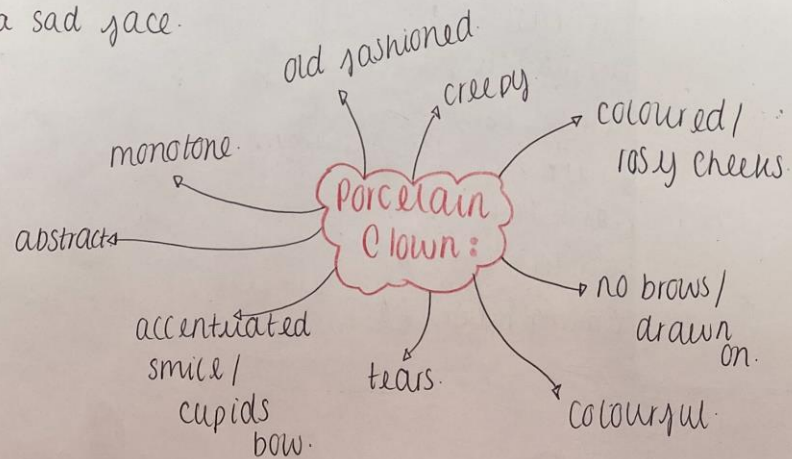 a sad face.
old fashioned.
creepy
coloured/
rosy cheeks.
monotone.
Porcelain
Clown:
abstract
no brows/
drawn
on.
accentuated
smile/
cupids
bow.
tears.
colourful.